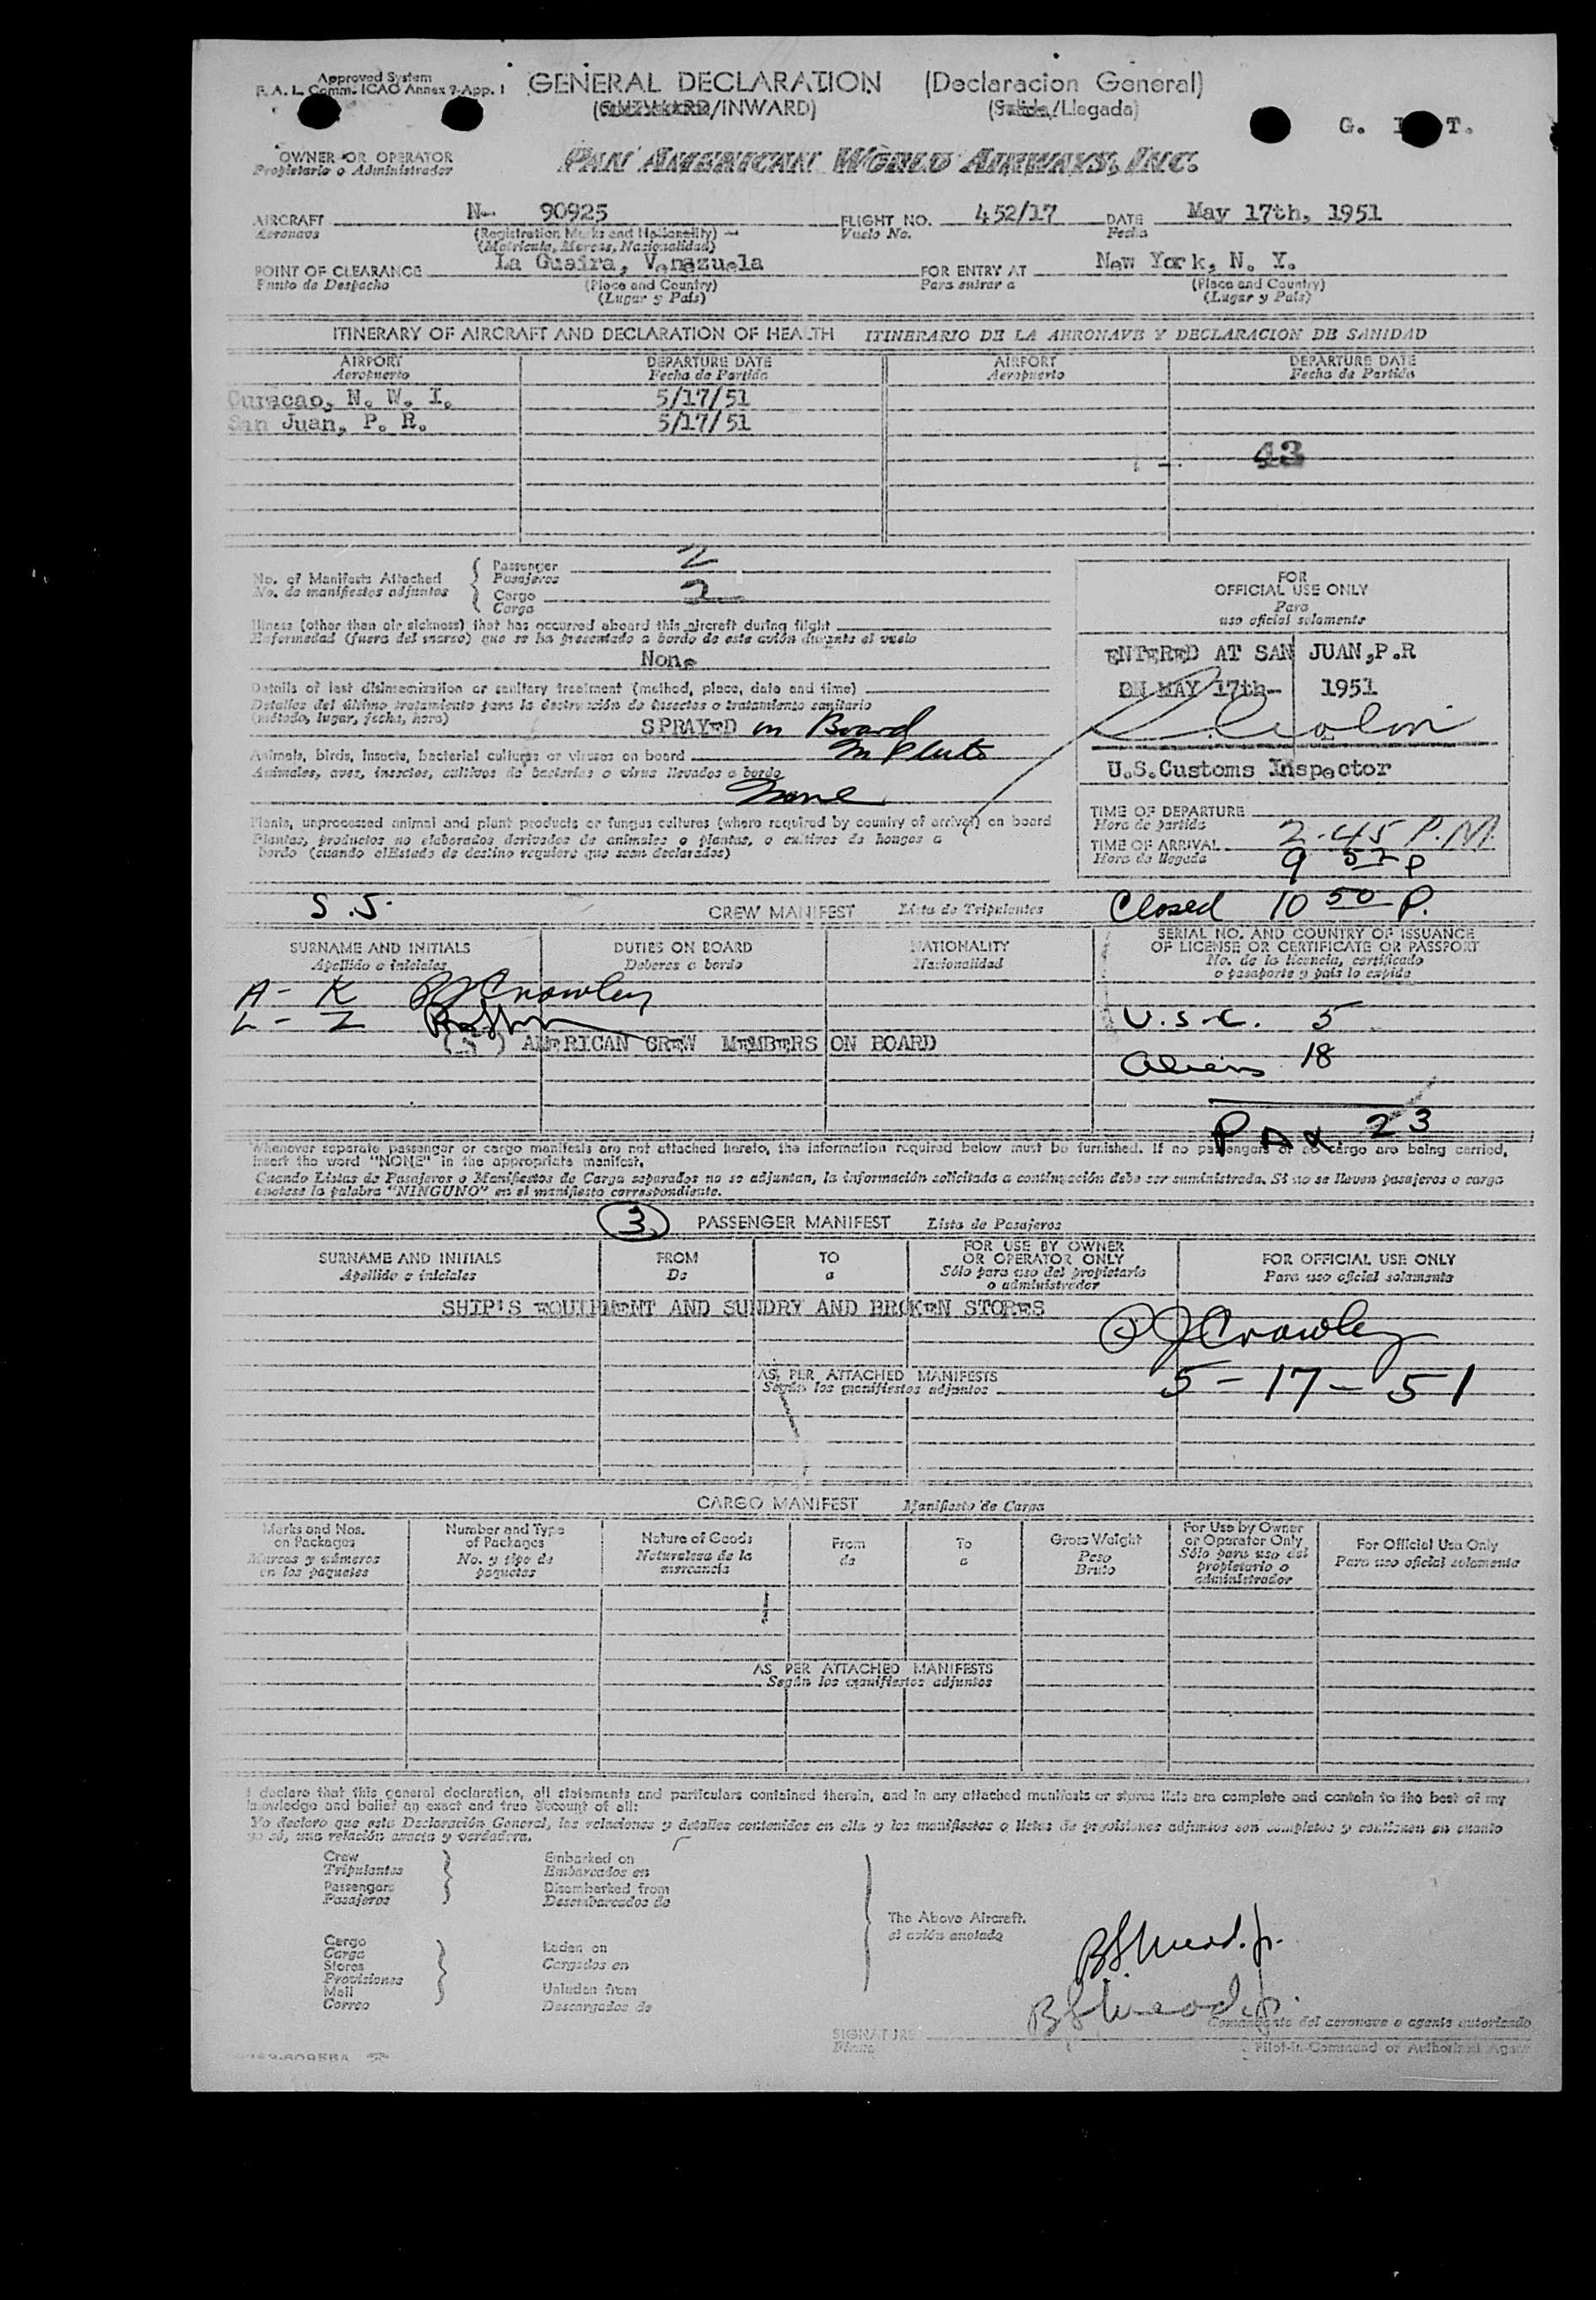 Approved System
F. A. L. Comm. ICAO Annex 9-App. 1
GENERAL DECLARATION (Declaracion General)
(OUTWARD/INWARD) (Salida/Llegada)
G. T.
OWNER OR OPERATOR
Propietario o Administrador
PAN AMERICAN WORLD AIRWAYS, INC.
AIRCRAFT N- 90925 FLIGHT NO. 452/17 DATE May 17th, 1951
Aeronave (Registration Marks and Nationality) Vuelo No. Fecha
(Matricula, Marcas, Nacionalidad)
POINT OF CLEARANCE La Guaira, Venezuela FOR ENTRY AT New York, N. Y.
Punto de Despacho (Place and Country) Para entrar a (Place and Country)
(Lugar y País) (Lugar y País)
ITINERARY OF AIRCRAFT AND DECLARATION OF HEALTH ITINERARIO DE LA AERONAVE Y DECLARACION DE SANIDAD
AIRPORT DEPARTURE DATE AIRPORT DEPARTURE DATE
Aeropuerto Fecha de Partida Aeropuerto Fecha de Partida
Curacao, N. W. I. 5/17/51
San Juan, P. R. 5/17/51
43
No. of Manifests Attached Passenger 2
No. de manifiestos adjuntos Pasajeros
Cargo 2
Carga
Illness (other than air sickness) that has occurred aboard this aircraft during flight
Enfermedad (fuera del mareo) que se ha presentado a bordo de este avión durante el vuelo
None
Details of last disinsectization or sanitary treatment (method, place, date and time)
Detalles del último tratamiento para la destrucción de insectos o tratamiento sanitario
(método, lugar, fecha, hora)
SPRAYED on Board
Animals, birds, insects, bacterial cultures or viruses on board
Animales, aves, insectos, cultivos de bacterias o virus llevados a bordo
None
Plants, unprocessed animal and plant products or fungus cultures (where required by country of arrival) on board
Plantas, productos no elaborados derivados de animales o plantas, o cultivos de hongos a
bordo (cuando elEstado de destino requiere que sean declarados)
FOR
OFFICIAL USE ONLY
Para
uso oficial solamente
ENTERED AT SAN JUAN,P.R
ON MAY 17th- 1951
U.S.Customs Inspector
TIME OF DEPARTURE
Hora de partida 2.45 P.M.
TIME OF ARRIVAL
Hora de llegada 9 52 P
S.J. CREW MANIFEST Lista de Tripulantes Closed 10 50 P.
SURNAME AND INITIALS DUTIES ON BOARD NATIONALITY SERIAL NO. AND COUNTRY OF ISSUANCE
OF LICENSE OR CERTIFICATE OR PASSPORT
Apellido e iniciales Deberes a bordo Nacionalidad No. de la licencia, certificado
o pasaporte y país lo expide
A - K PJ Crowley
L - Z U.S.C. 5
(5) AMERICAN CREW MEMBERS ON BOARD
Aliens 18
Pax 23
Whenever separate passenger or cargo manifests are not attached hereto, the information required below must be furnished. If no passengers or no cargo are being carried,
insert the word "NONE" in the appropriate manifest.
Cuando Listas de Pasajeros o Manifiestos de Carga separados no se adjuntan, la información solicitada a continuación debe ser suministrada. Si no se lleven pasajeros o carga
anótese la palabra "NINGUNO" en el manifiesto correspondiente.
3 PASSENGER MANIFEST Lista de Pasajeros
SURNAME AND INITIALS FROM TO FOR USE BY OWNER
OR OPERATOR ONLY FOR OFFICIAL USE ONLY
Apellido e iniciales De a Sólo para uso del propietario
o administrador Para uso oficial solamente
SHIP'S EQUIPMENT AND SUNDRY AND BROKEN STORES
PJ Crowley
AS PER ATTACHED MANIFESTS
Según los manifiestos adjuntos 5-17-51
CARGO MANIFEST Manifiesto de Carga
Marks and Nos.
on Packages
Marcas y números
en los paquetes
Number and Type
of Packages
No. y tipo de
paquetes
Nature of Goods
Naturaleza de la
mercancía
From
de
To
a
Gross Weight
Peso
Bruto
For Use by Owner
or Operator Only
Sólo para uso del
propietario o
administrador
For Official Use Only
Para uso oficial solamente
AS PER ATTACHED MANIFESTS
Según los manifiestos adjuntos
I declare that this general declaration, all statements and particulars contained therein, and in any attached manifests or stores lists are complete and contain to the best of my
knowledge and belief an exact and true account of all:
Yo declaro que esta Declaración General, las relaciones y detalles contenidos en ella y los manifiestos o listas de provisiones adjuntos son completos y contienen en cuanto
yo sé, una relación exacta y verdadera.
Crew Embarked on
Tripulantes Embarcados en
Passengers Disembarked from
Pasajeros Desembarcados de
The Above Aircraft.
el avión anotado
Cargo Laden on
Carga Cargados en
Stores
Provisiones
Mail Unladen from
Correo Descargados de
SIGNATURE
Firma
Comandante del aeronave o agente autorizado
Pilot-in-Command or Authorized Agent